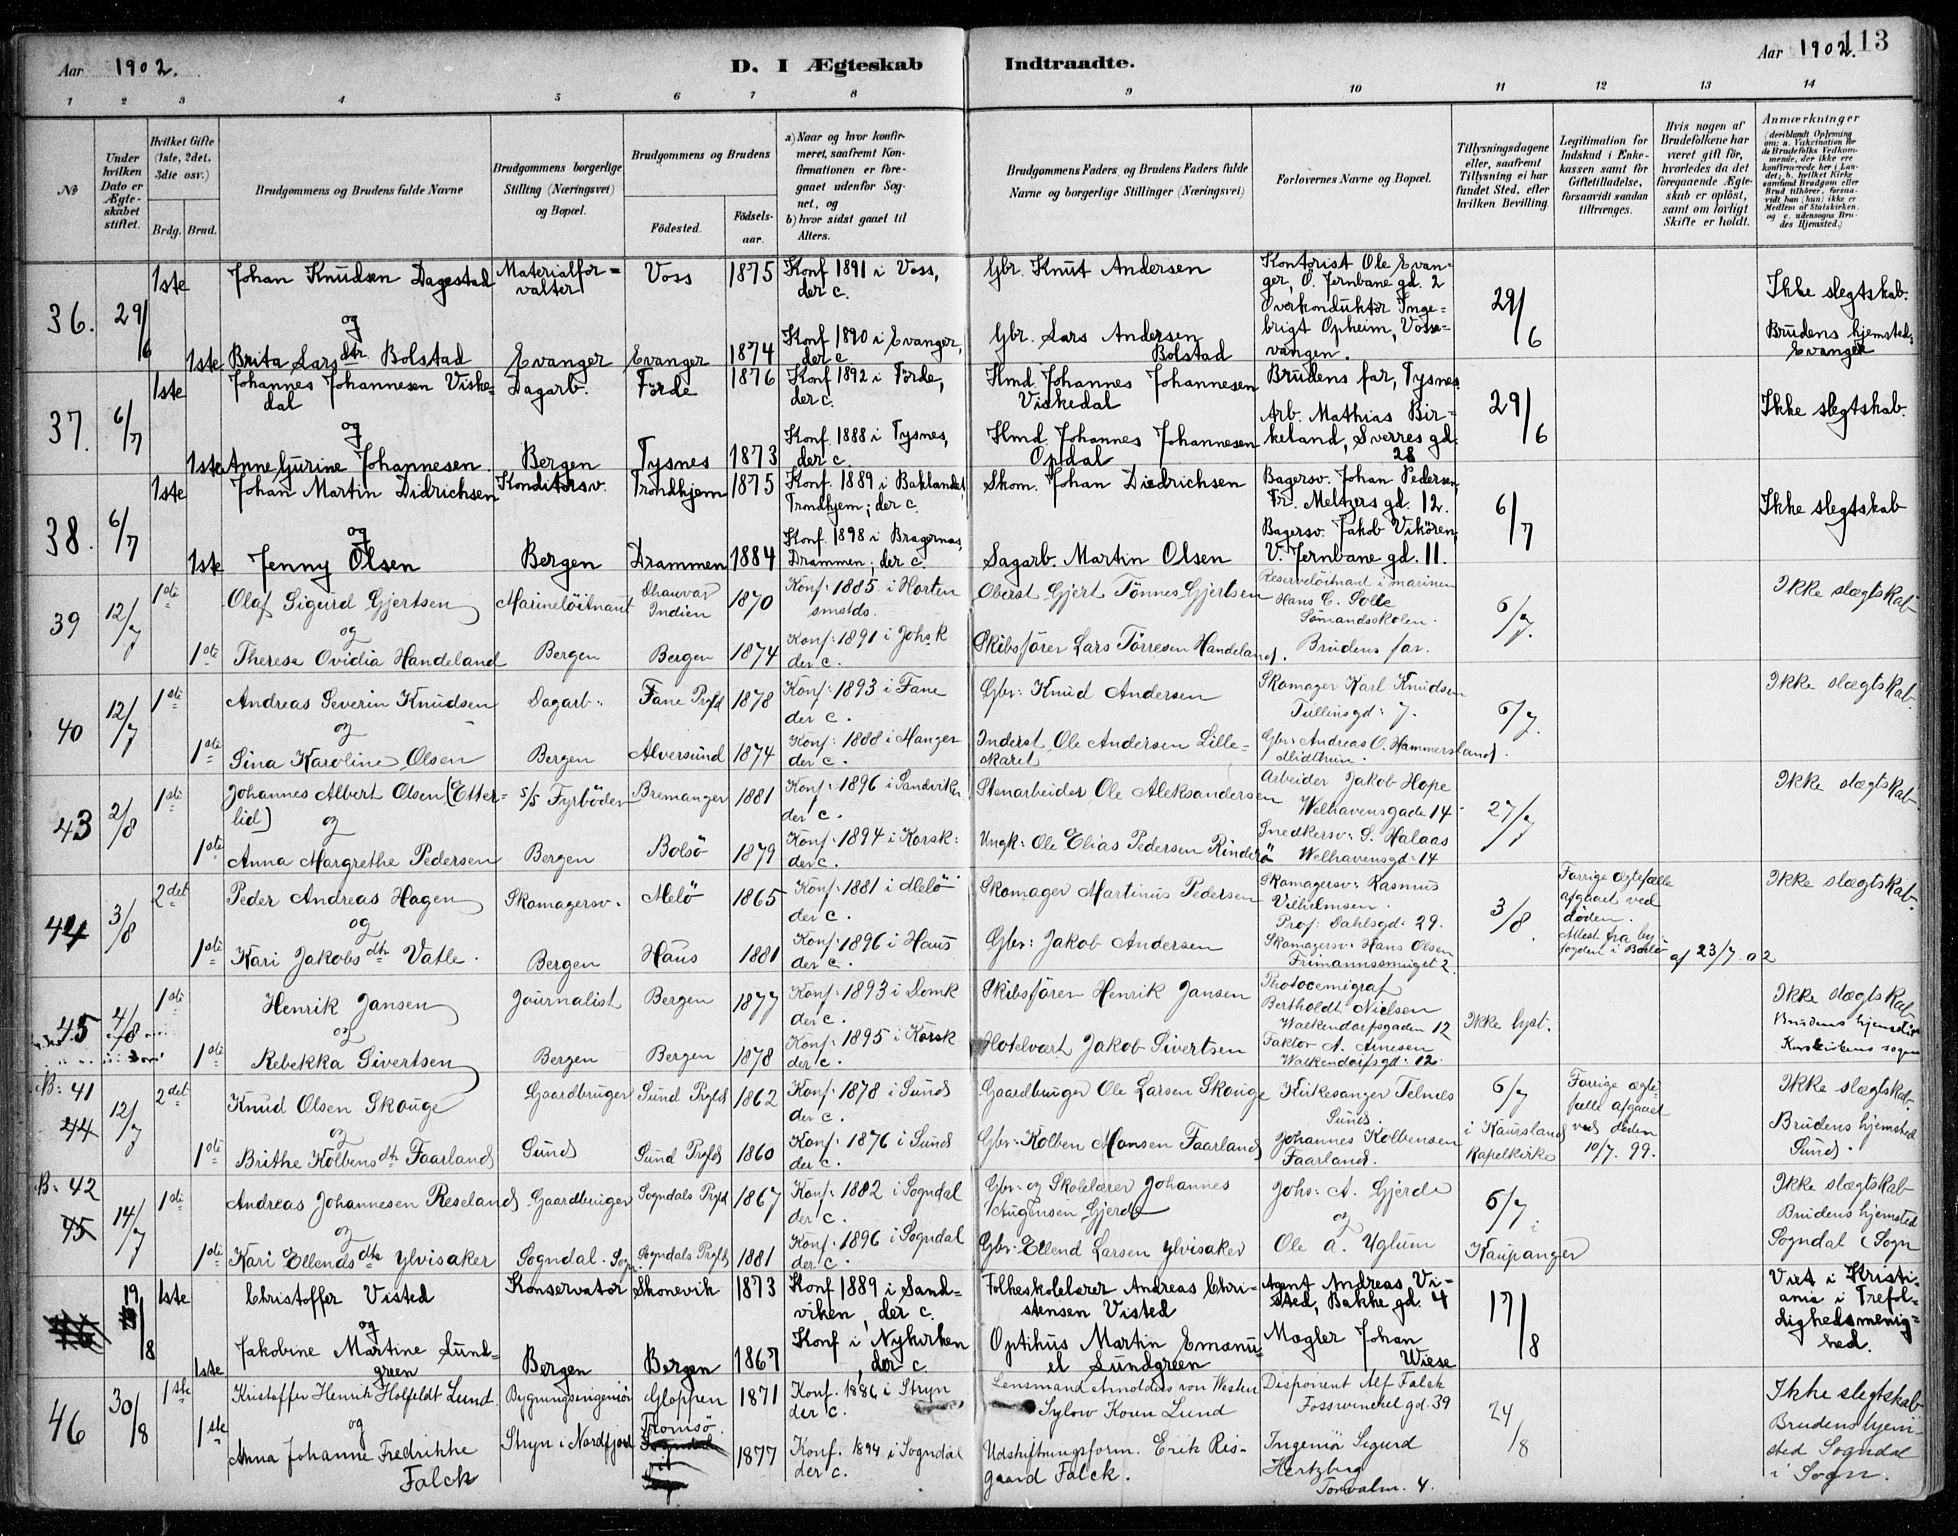 Aar 1902.
D. I Ægteskab Indtraadte.
Aar 1902. 113
1 2 3 4 5 6 7 8 9 10 11 12 13 14
№
Under hvilken Dato er Ægteskabet stiftet.
Hvilket Gifte (1ste, 2det, 3die osv.)
Brdg. Brud.
Brudgommens og Brudens fulde Navne
Brudgommens borgerlige Stilling (Næringsvei) og Bopæl.
Brudgommens og Brudens
Födested. Födselsaar.
a) Naar og hvor konfirmeret, saafremt Konfirmationen er foregaaet udenfor Sognet, og
b) hvor sidst gaaet til Alters.
Brudgommens Faders, og Brudens Faders fulde Navne og borgerlige Stillinger (Næringsvei)
Forlovernes Navne og Bopæl.
Tillysningsdagene eller, saafremt Tillysning ei har fundet Sted, efter hvilken Bevilling.
Legitimation for Indskud i Enkekassen samt for Giftetilladelse, forsaavidt saadan tiltrænges.
Hvis nogen af Brudefolkene har været gift før, hvorledes da det foregaaende Ægteskab er oplöst, samt om lovligt Skifte er holdt.
Anmærkninger
(deriblandt Oplysning om: a. Vaccination for de Brudefolks Vedkommende, der ikke ere konfirmerede her i Landet; b. hvilket Kirkesamfund Brudgom eller Brud tilhörer, forsaavidt han (hun) ikke er Medlem af Statskirken, og c. udensogns Brudes Hjemsted.)
36. 29/6 1ste Johan Knudsen Dagestad Materialforvalter Voss 1875 Konf 1891 i Voss, der c. Gbr. Knut Andersen Kontorist Ole Evanger, Ö. Jernbane gd. 2 29/6 Ikke slegtskab.
og
1ste Brita Larsdtr. Bolstad Evanger Evanger 1874 Konf 1890 i Evanger, der c Gbr. Lars Andersen Bolstad Overkonduktör Ingebrigt Opheim, Vossevangen. Brudens hjemsted: Evanger
37. 6/7 1ste Johannes Johannesen Viskedal Dagarb. Förde 1876 Konf 1892 i Förde, der c. Hmd. Johannes Johannesen Viskedal Brudens far, Tysnes. 29/6 Ikke slegtskab.
og
1ste Anne Gurine Johannesen Bergen Tysnes 1873 Konf. 1888 i Tysnes, der c. Hmd. Johannes Johannesen Opdal Arb. Mathias Birkeland, Sverres gd. 28
38. 6/7 1ste Johan Martin Didrichsen Konditorsv. Trondhjem 1875 Konf. 1889 i Baklandet, Trondhjem; der c. Skom. Johan Diedrichsen Bagersv. Johan Pedersen, Fr. Meltzers gd. 12. 6/7 Ikke slegtskab
og
1ste Jenny Olsen Bergen Drammen 1884 Konf. 1898 i Bragernas, Drammen; der c. Sagarb. Martin Olsen Bagersv. Jakob Vikören, V. Jernbane gd. 11.
39 12/7 1ste Olaf Sigurd Gjertsen Marinelöitnant Dharvar Indien 1870 Konf: 1885 i Horten smstds. Oberst Gjert Tönnes Gjertsen Reservelöitnant i marinen Hans C. Solle Sömandsskolen. 6/7. Ikke slægtskab
og
1ste Therese Ovidia Handeland Bergen Bergen 1874 Konf: 1891 i Johsk der c. Skibsförer Lars Törresen Handeland. Brudens far.
40 12/7 1ste Andreas Severin Knudsen Dagarb: Fane Prgld 1878 Konf: 1893 i Fane der c. Gbr: Knud Andersen Skomager Karl Knudsen Tullinsgd: 7. 6/7. Ikke slægtskab.
og
1ste Sina Karoline Olsen Bergen Alversund 1874 Konf: 1888 i Manger der c. Inderst Ole Andersen Lilleskaret Gbr: Andreas O. Hammersland. Midthun.
43 2/8 1ste Johannes Albert Olsen (Etterlid) s/s Fyrböder Bremanger 1881 Konf: 1896 i Sandviken der c. Stenarbeider Ole Aleksandersen Arbeider Jakob Hope Welhavensgade 14. 27/7 Ikke slægtskab.
og
1ste Anna Margrethe Pedersen Bergen Bolsö 1879 Konf: 1894 i Korsk: der c. Ungk: Ole Elias Pedersen Rinderö Snedkersv: S. Halaas Welhavensgd: 14
44 3/8 2det Peder Andreas Hagen Skomagersv. Melö 1865 Konf: 1881 i Melö der c. Skomager Martinus Pedersen Skomagersv: Rasmus Vilhelmsen. Prof: Dahlsgd: 29. 3/8. Forrige ægtefælle afgaaet ved döden. Attest fra byfogden i Bodö af 23/7. 02 Ikke slægtskab.
og
1ste Kari Jakobsdtr Vatle. Bergen Haus 1881 Konf: 1896 i Haus der c. Gbr: Jakob Andersen Skomagersv: Hans Olsen Frimannssmuget 2.
45 4/8 1ste Henrik Jansen Journalist Bergen 1877 Konf: 1893 i Domk der c. Skibsförer Henrik Jansen Photocemigraf Bertholdt Nielsen Walkendorfsgaden 12 Ikke lyst. Ikke slægtskab
og
1ste Rebekka Sivertsen Bergen Bergen 1878 Konf: 1895 i Korsk der c. Hotelvært Jakob Sivertsen Faktor A. Arnesen Walkendorfsgd: 12. Brudens hjemsted Korskirkens sogn
B: 41 44 12/7 2det Knud Olsen Skouge Gaardbruger Sund Prgld 1862 Konf: 1878 i Sund der c. Gaardbruger Ole Larsen Skouge Kirkesanger Telnes Sund. 6/7 i Kaursland Kapelkirke Forrige ægtefælle afgaaet ved döden 10/7. 99. Ikke slægtskab.
og
1ste Brithe Kolbensdtr Faarland Sund Sund Prgld 1860 Konf: 1876 i Sund der c. Gbr: Kolben Monsen Faarland Johannes Kolbensen Faarland. Brudens hjemsted Sund.
B: 42 45 14/7 1ste Andreas Johannesen Reseland Gaardbruger Sogndals Prgld 1867 Konf: 1882 i Sogndal der c. Gbr: og Skolelærer Johannes Augensen Gjerde Johs: A. Gjerde 6/7 i Kaupanger Ikke slægtskab
og
1ste Kari Ellendsdtr Ylvisaker Sogndal. Sogn. Sogndals Prgld 1881 Konf: 1896 i Sogndal der c. Gbr: Ellend Larsen Ylvisaker og Ole A. Uglum Brudens hjemsted Sogndal i Sogn
19/8 1ste Christoffer Visted Konservator Skonevik 1873 Konf 1889 i Sandviken, der c. Folkeskolelærer Andreas Christensen Visted Agent Andreas Visted, Bakke gd. 4 17/8 Viet i Kristiania i Trefoldighedsmenighed.
og
1ste Jakobine Martine Sundgreen Bergen Bergen 1867 Konf i Nykirken, der c. Optikus Martin Emanuel Sundgreen Mægler Johan Wiese
46 30/8 1ste Kristoffer Henrik Holfeldt Lund Bygningsingeniör Gloppen 1871 Konf. 1886 i Stryn der c. Lensmand Arnoldus von Westen Sylow Koren Lund Disponent Alf Falck Fosswinckel gd. 39 24/8 Ikke slegtskab
og
1ste Anna Johanne Fredrikke Falck Stryn i Nordfjord Tromsö. 1877 Konf. 1894 i Sogndal der c. Udskiftningsform. Erik Risgaard Falck. Ingeniör Sigurd Hertzberg Torvalm. 4. Brudens hjemsted Sogndal i Sogn.